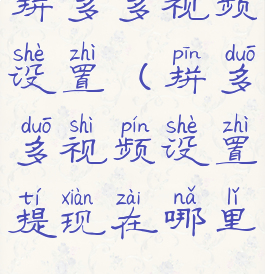 拼多多视频
shè zhì pīn duō
设置(拼多
duō shì pín shè zhì
多视频设置
tí xiàn zài nǎ lǐ
提现在哪里